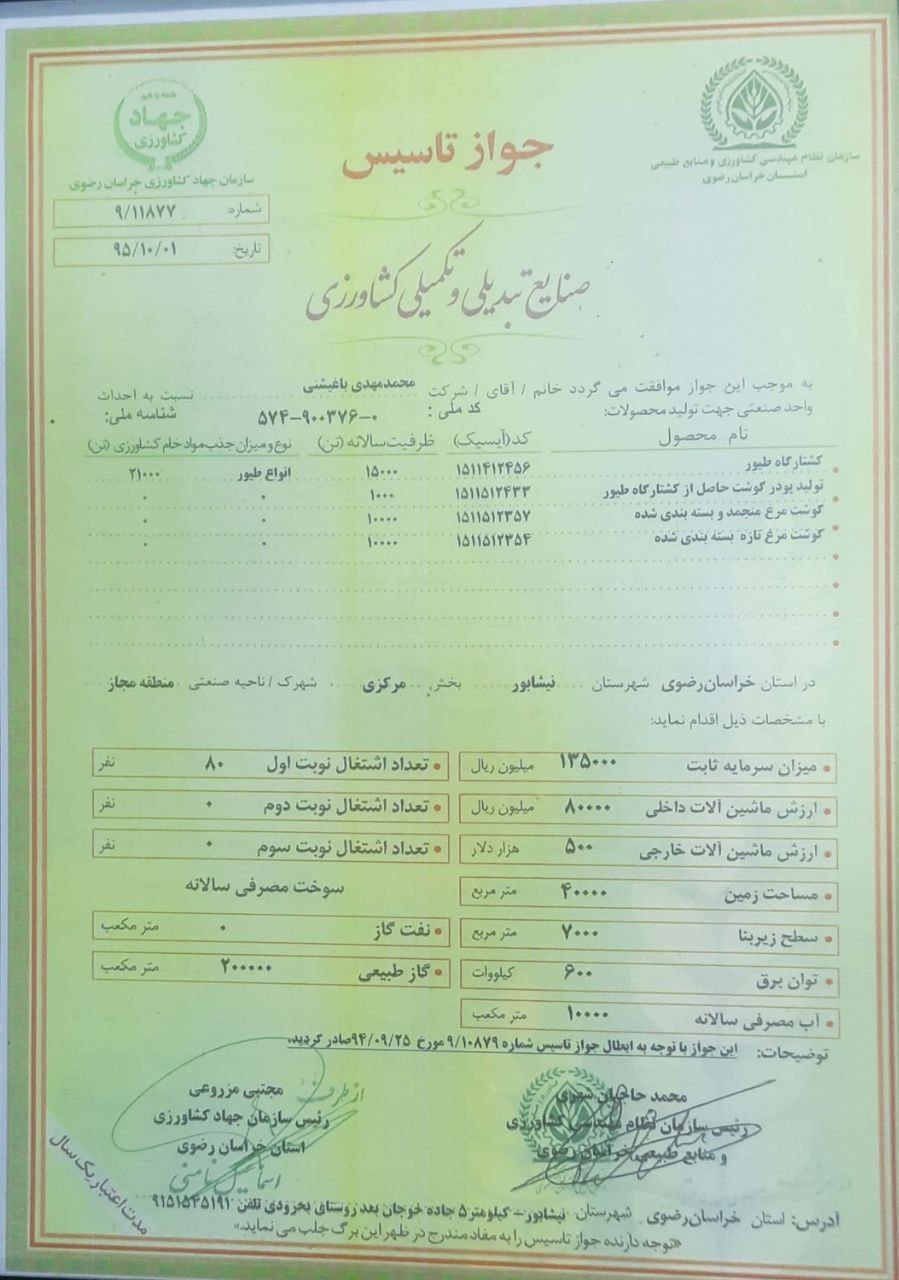 همه با هم
جهاد
کشاورزی
سازمان جهاد کشاورزی خراسان رضوی
شماره: ۹/۱۱۸۷۷
تاریخ: ۹۵/۱۰/۰۱
جواز تاسیس
سازمان نظام مهندسی کشاورزی و منابع طبیعی
استان خراسان رضوی
صنایع تبدیلی و تکمیلی کشاورزی
به موجب این جواز موافقت می گردد خانم / آقای / شرکت محمدمهدی باغیشنی نسبت به احداث
واحد صنعتی جهت تولید محصولات: کد ملی: ۵۷۴-۹۰۰۳۷۶-۰ شناسه ملی:
نام محصول کد(آیسیک) ظرفیت سالانه (تن) نوع و میزان جذب مواد خام کشاورزی (تن)
کشتارگاه طیور ۱۵۱۱۴۱۲۴۵۶ ۱۵۰۰۰ انواع طیور ۲۱۰۰۰
تولید پودر گوشت حاصل از کشتارگاه طیور ۱۵۱۱۵۱۲۴۳۳ ۱۰۰۰ ۰ ۰
گوشت مرغ منجمد و بسته بندی شده ۱۵۱۱۵۱۲۳۵۷ ۱۰۰۰۰ ۰ ۰
گوشت مرغ تازه بسته بندی شده ۱۵۱۱۵۱۲۳۵۴ ۱۰۰۰۰ ۰ ۰
در استان خراسان رضوی شهرستان نیشابور بخش مرکزی شهرک / ناحیه صنعتی منطقه مجاز
با مشخصات ذیل اقدام نماید:
میزان سرمایه ثابت ۱۳۵۰۰۰ میلیون ریال
تعداد اشتغال نوبت اول ۸۰ نفر
ارزش ماشین آلات داخلی ۸۰۰۰۰ میلیون ریال
تعداد اشتغال نوبت دوم ۰ نفر
ارزش ماشین آلات خارجی ۵۰۰ هزار دلار
تعداد اشتغال نوبت سوم ۰ نفر
مساحت زمین ۴۰۰۰۰ متر مربع
سوخت مصرفی سالانه
سطح زیربنا ۷۰۰۰ متر مربع
نفت گاز ۰ متر مکعب
توان برق ۶۰۰ کیلووات
گاز طبیعی ۲۰۰۰۰۰ متر مکعب
آب مصرفی سالانه ۱۰۰۰۰ متر مکعب
توضیحات: این جواز با توجه به ابطال جواز تاسیس شماره ۹/۱۰۸۷۹ مورخ ۹۴/۰۹/۲۵ صادر گردید.
محمد حاجیان شهری
رئیس سازمان نظام مهندسی کشاورزی
و منابع طبیعی خراسان رضوی
از طرف
مجتبی مزروعی
رئیس سازمان جهاد کشاورزی
استان خراسان رضوی
مدت اعتبار یک سال
آدرس: استان خراسان رضوی شهرستان نیشابور - کیلومتر ۵ جاده خوجان بعد روستای بحرودی تلفن ۹۱۵۱۵۳۵۱۹۱
«توجه دارنده جواز تاسیس را به مفاد مندرج در ظهر این برگ جلب می نماید.»